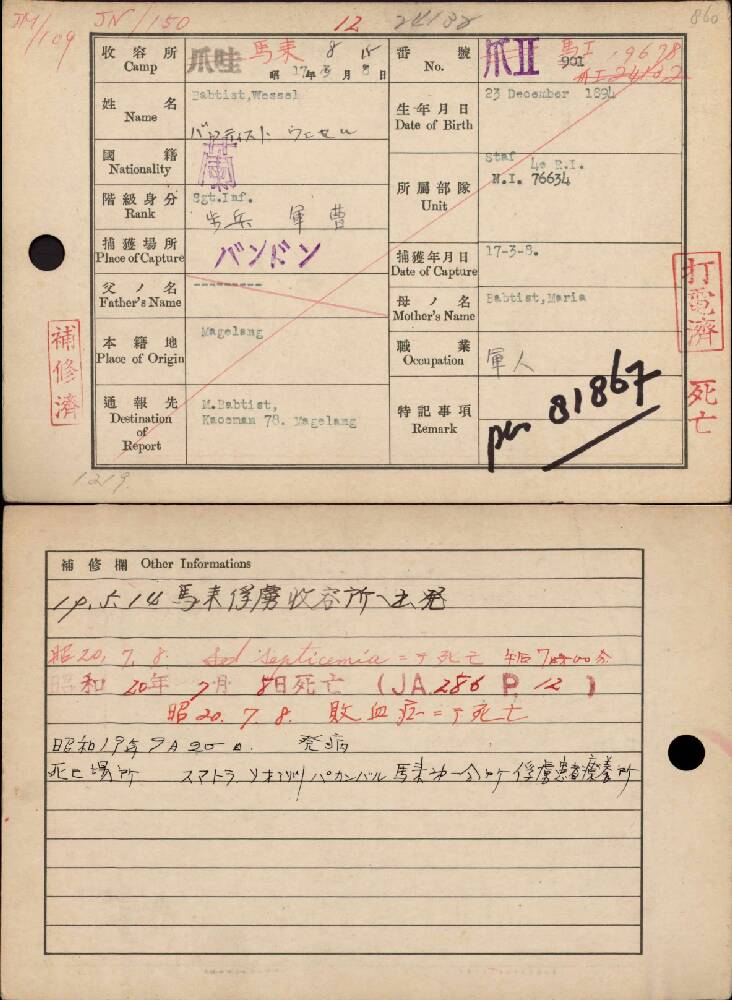 JM/109 JN/150 12 24138 860
收容所 Camp 爪哇 馬来 8 15
昭 17年 3月 8日
番號 No. 爪II 馬I 9678
901
姓名 Name Babtist,Wessel
バプティスト ウェセル
生年月日 Date of Birth 23 December 1894
國籍 Nationality 蘭
階級身分 Rank Sgt.Inf.
步兵 軍曹
所屬部隊 Unit Staf 4e R.I.
N.I. 76634
捕獲場所 Place of Capture バンドン
捕獲年月日 Date of Capture 17-3-8.
父ノ名 Father's Name ---------
母ノ名 Mother's Name Babtist,Maria
本籍地 Place of Origin Magelang
職業 Occupation 軍人
通報先 Destination of Report M.Babtist,
Kaoeman 78. Magelang
特記事項 Remark
81867
補修濟
打電濟
死亡
1219.
補修欄 Other Informations
19.5.14 馬来俘虜收容所へ出発
昭20.7.8. Septicemia ニテ死亡 午后7時00分
昭和 20年 7月 8日死亡 (JA.286 P.12)
昭20.7.8. 敗血症ニテ死亡
昭和19年9月20日. 発病
死亡場所 スマトラ パカンバル 馬来第一分所 俘虜患者療養所